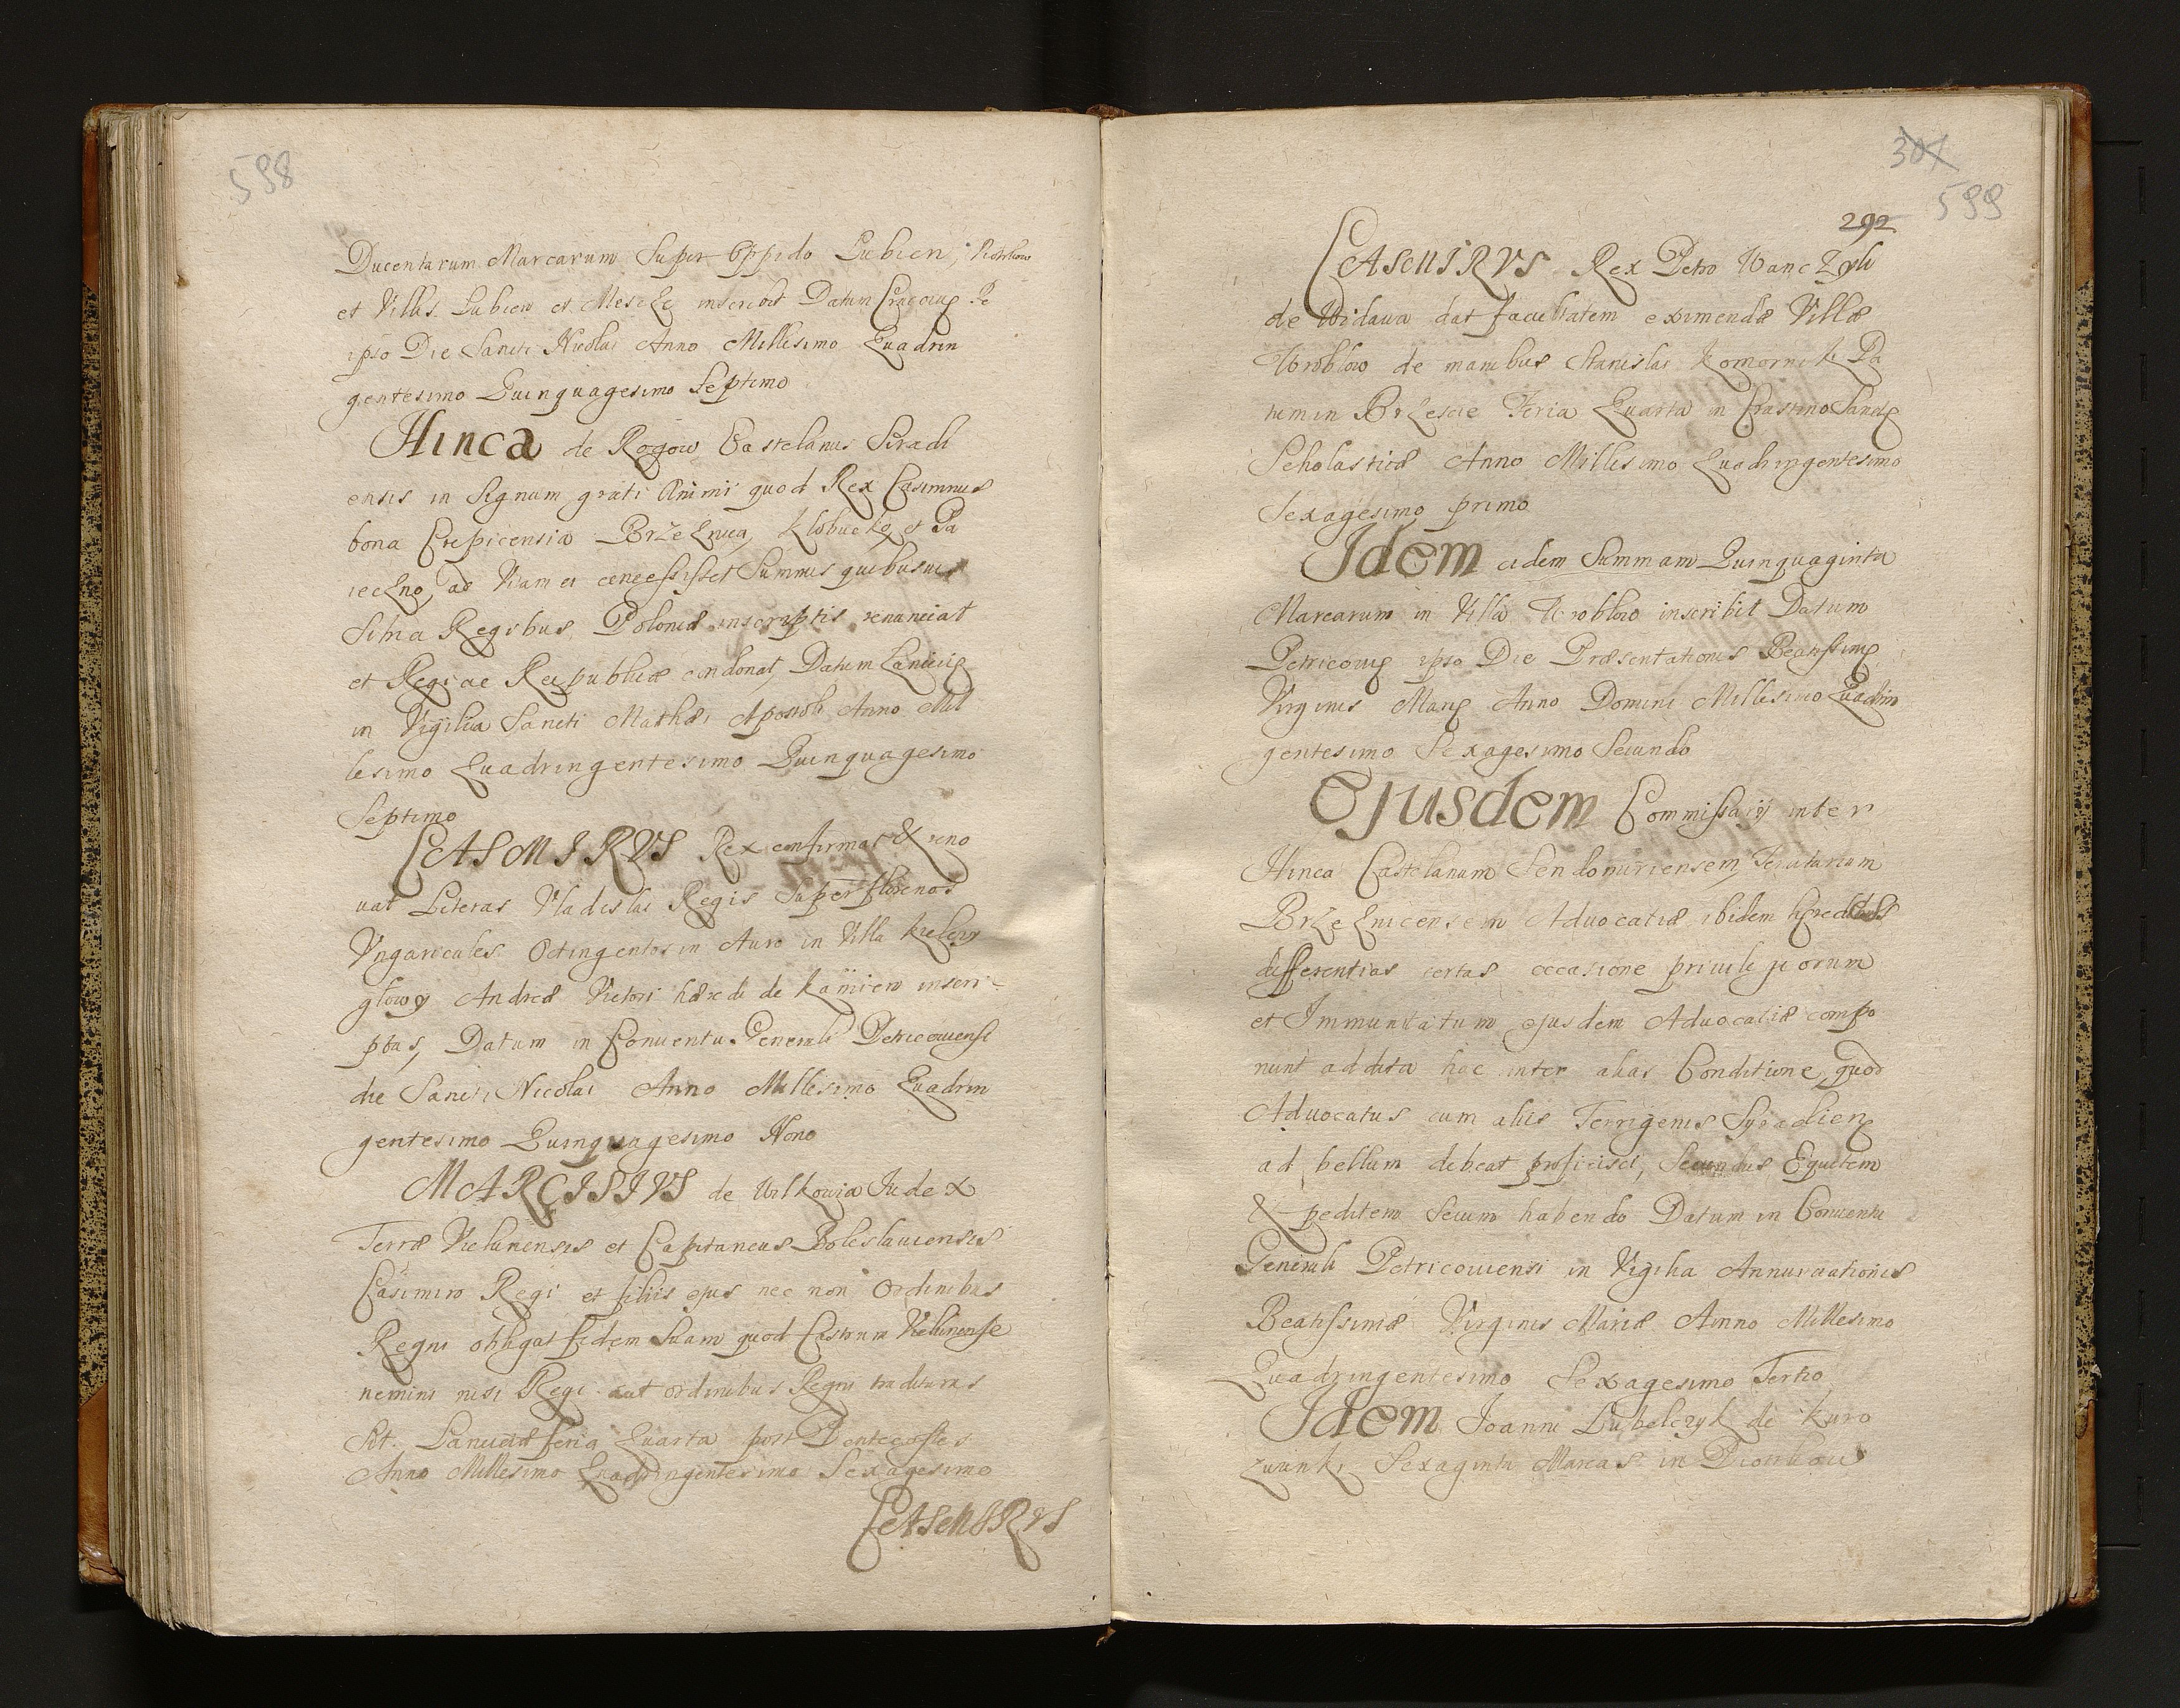 598
Ducentarum Marcarum Super Oppido Lubien, Piotrkow
et Villis Lubien et Meszcze inscribit Datum Cracoviæ Fe
ipso Die Sancti Nicolai Anno Millesimo Quadrin
gentesimo Quinquagesimo Septimo
Hinca de Rogow Castelanus Siradi
ensis in Signum grati Animi quod Rex Casimirus
bona Crepicensia Brzeznica, Klobucko, et Pa
ieczno, ad Vitam ei concessisset Summis quibusuis
Silua Regibus Poloniæ inscriptis renunciat
et Regiae Reipublicæ condonat, Datum Lanciciæ
in Vigilia Sancti Mathæi Apostoli Anno Mil
lesimo Quadringentesimo Quinquagesimo
Septimo
CASMIRVS Rex confirmat & reno
uat Literas Vladislai Regis Super florenos
Vngaricales Octingentos in Auro in Villa Kielczy
glowy Andreæ Victori hærede de Kamien inscri-
ptas, Datum in Conuentu Generali Petricouiensi
die Sancti Nicolai Anno Millesimo Quadrin
gentesimo Quinquagesimo Nono
MARCISIVS de Wilkowia Iudex
Terræ Vielunensis et Capitaneus Boleslauiensis
Casimiro Regi et filiis ejus nec non Ordinibus
Regni obligat fidem Suam quod Castrum Vielunense
nemini nisi Regi aut ordinibus Regni traditurus
Sit. Lanciciæ feria Quarta post Pentecostes
Anno Millesimo Quadringentesimo Sexagesimo
CASMIRVS
301
599
292
CASMIRVS Rex Petro Wanczyk
de Widaua dat facultatem eximendæ Villæ
Wroblow de manibus Stanislai Komornik Da
tum in Brzescie Feria Quarta in Crastino Sanctæ
Scholasticæ Anno Millesimo Quadringentesimo
Sexagesimo primo
Idem eidem Summam Quinquaginta
Marcarum in Villa Wroblow inscribit Datum
Petricouiæ ipso Die Præsentationis Beatissimæ
Virginis Mariæ Anno Domini Millesimo Quadrin
gentesimo Sexagesimo Secundo
Ejusdem Commissarij inter
Hinca Castelanum Sendomiriensem, Tenutarium
Brzeznicensem Aduocatiæ ibidem hæredibus
differentias certas occasione priuilegiorum
et Immunitatum ejusdem Aduocatiæ compo
nunt addita hac inter alias Conditione, quod
Aduocatus cum aliis Terrigenis Syradien
ad bellum debeat proficisci, Secundus Equitem
& peditem Secum habendo Datum in Conuentu
Generali Petricouiensi in Vigilia Annunciationis
Beatissimæ Virginis Mariæ Anno Millesimo
Quadringentesimo Sexagesimo Tertio
Idem Joanni Lubelczyk de Kuro
zwanki Sexaginta Marcas in Piotrkow